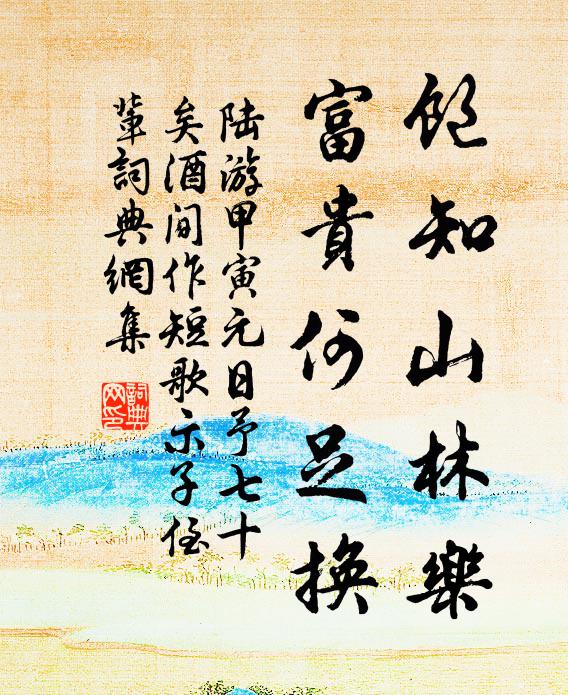 飽知山林樂
富貴何足換
陆游甲寅元日予七十
矣酒间作短歌示子侄
輩詞典網集
詞典
网印